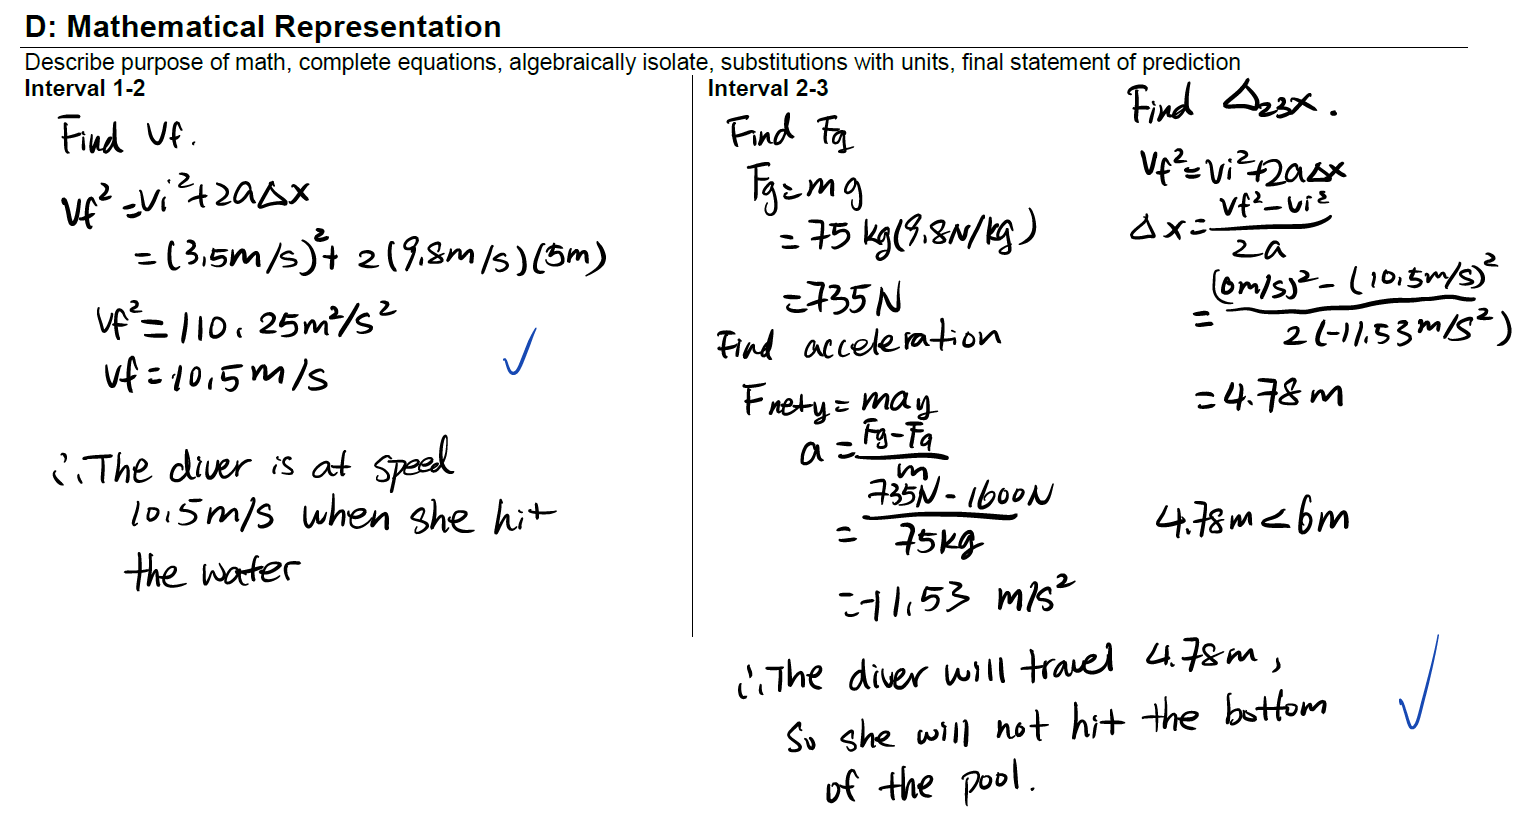 D: Mathematical Representation
Describe purpose of math, complete equations, algebraically isolate, substitutions with units, final statement of prediction
Interval 1-2
Find Vf.
Vf²=Vi²+2aΔx
=(3.5m/s)²+2(9.8m/s)(5m)
Vf²=110.25m²/s²
Vf=10.5m/s
∴The diver is at speed
10.5m/s when she hit
the water
Interval 2-3
Find Fg
Fg=mg
=75kg(9.8N/kg)
=735N
Find acceleration
Fnety=may
a=(Fg-Fa)/m
=(735N-1600N)/75kg
=-11.53 m/s²
Find Δ23x.
Vf²=Vi²+2aΔx
Δx=(Vf²-Vi²)/2a
=((0m/s)²-(10.5m/s)²)/2(-11.53m/s²)
=4.78m
4.78m<6m
∴The diver will travel 4.78m,
So she will not hit the bottom
of the pool.